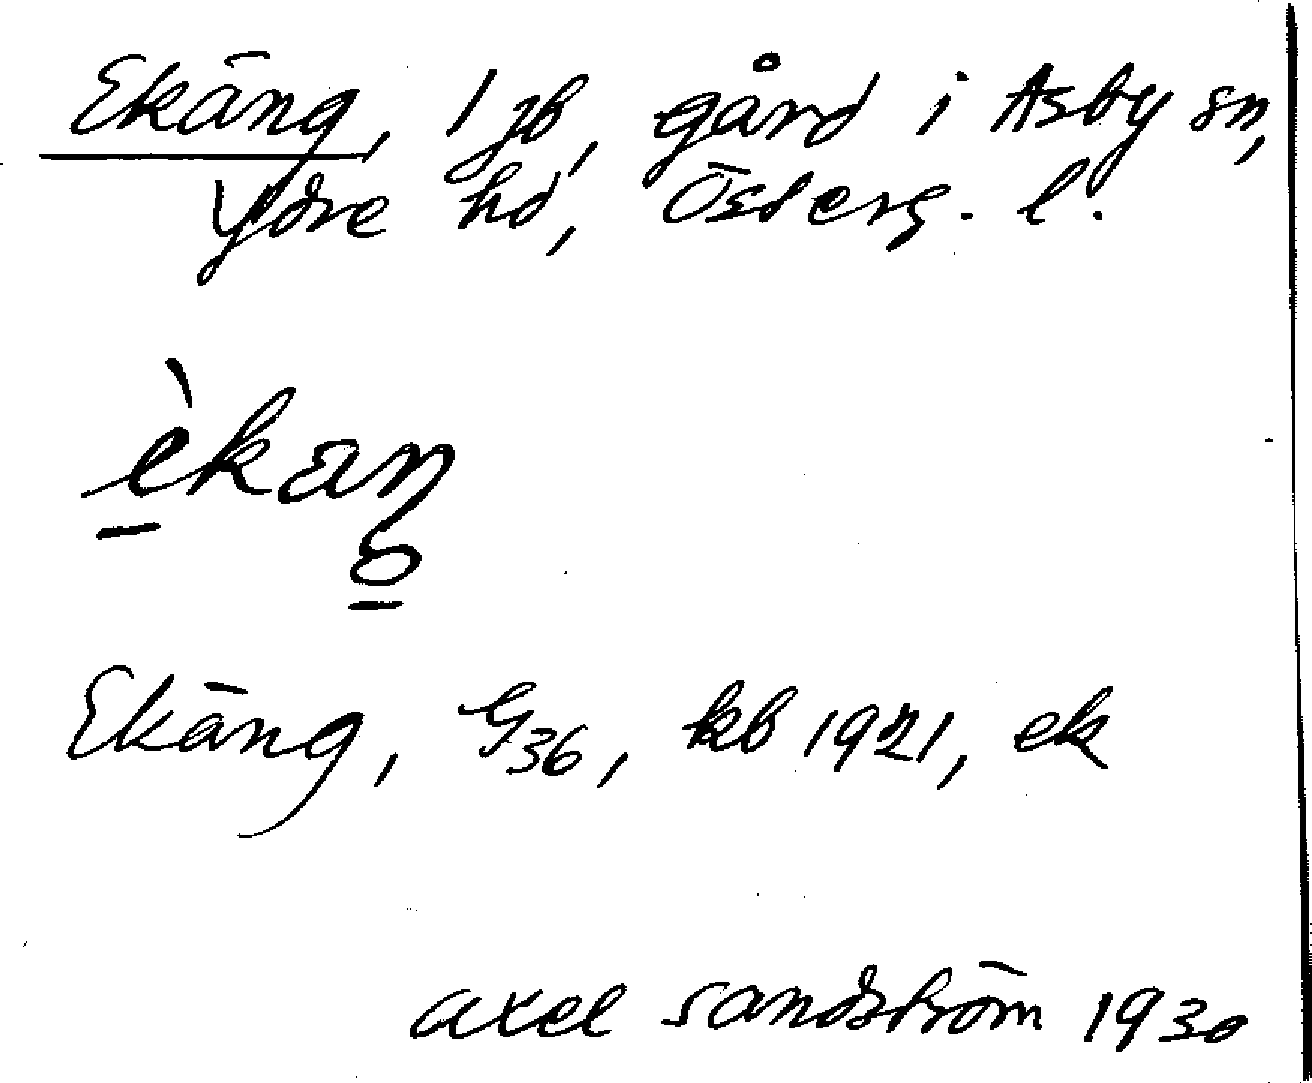 Ekäng, 1 jb, gård i Asby sn,
Ydre hd, Österg. l.
èkaŋ
Ekäng, G36, kb 1921, ek
axel sandström 1930